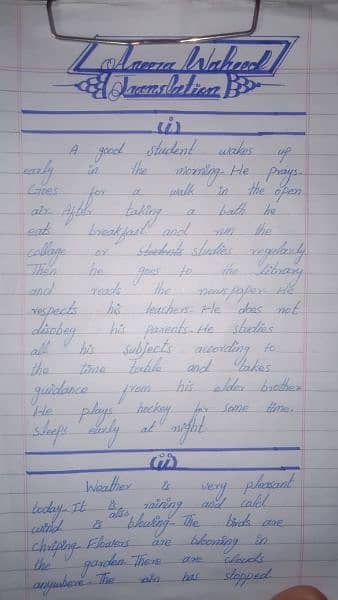 Aneeza Waheed
Translation
(i)
A good student wakes up
early in the morning. He prays.
Goes for a walk in the open
air. After taking a bath he
eats breakfast and run the
collage or students studies regularly
Then he goes to the library
and reads the newspaper. He
respects his teachers. He does not
disobey his parents. He studies
all his subjects according to
the time table and takes
guidance from his elder brother
He plays hockey for some time.
sleeps early at night
(ii)
Weather is very pleasant
today. It is raining and cold
wind is also blowing. The birds are
chriping. Flowers are blooming in
the garden. There are clouds
anywhere. The rain has stopped